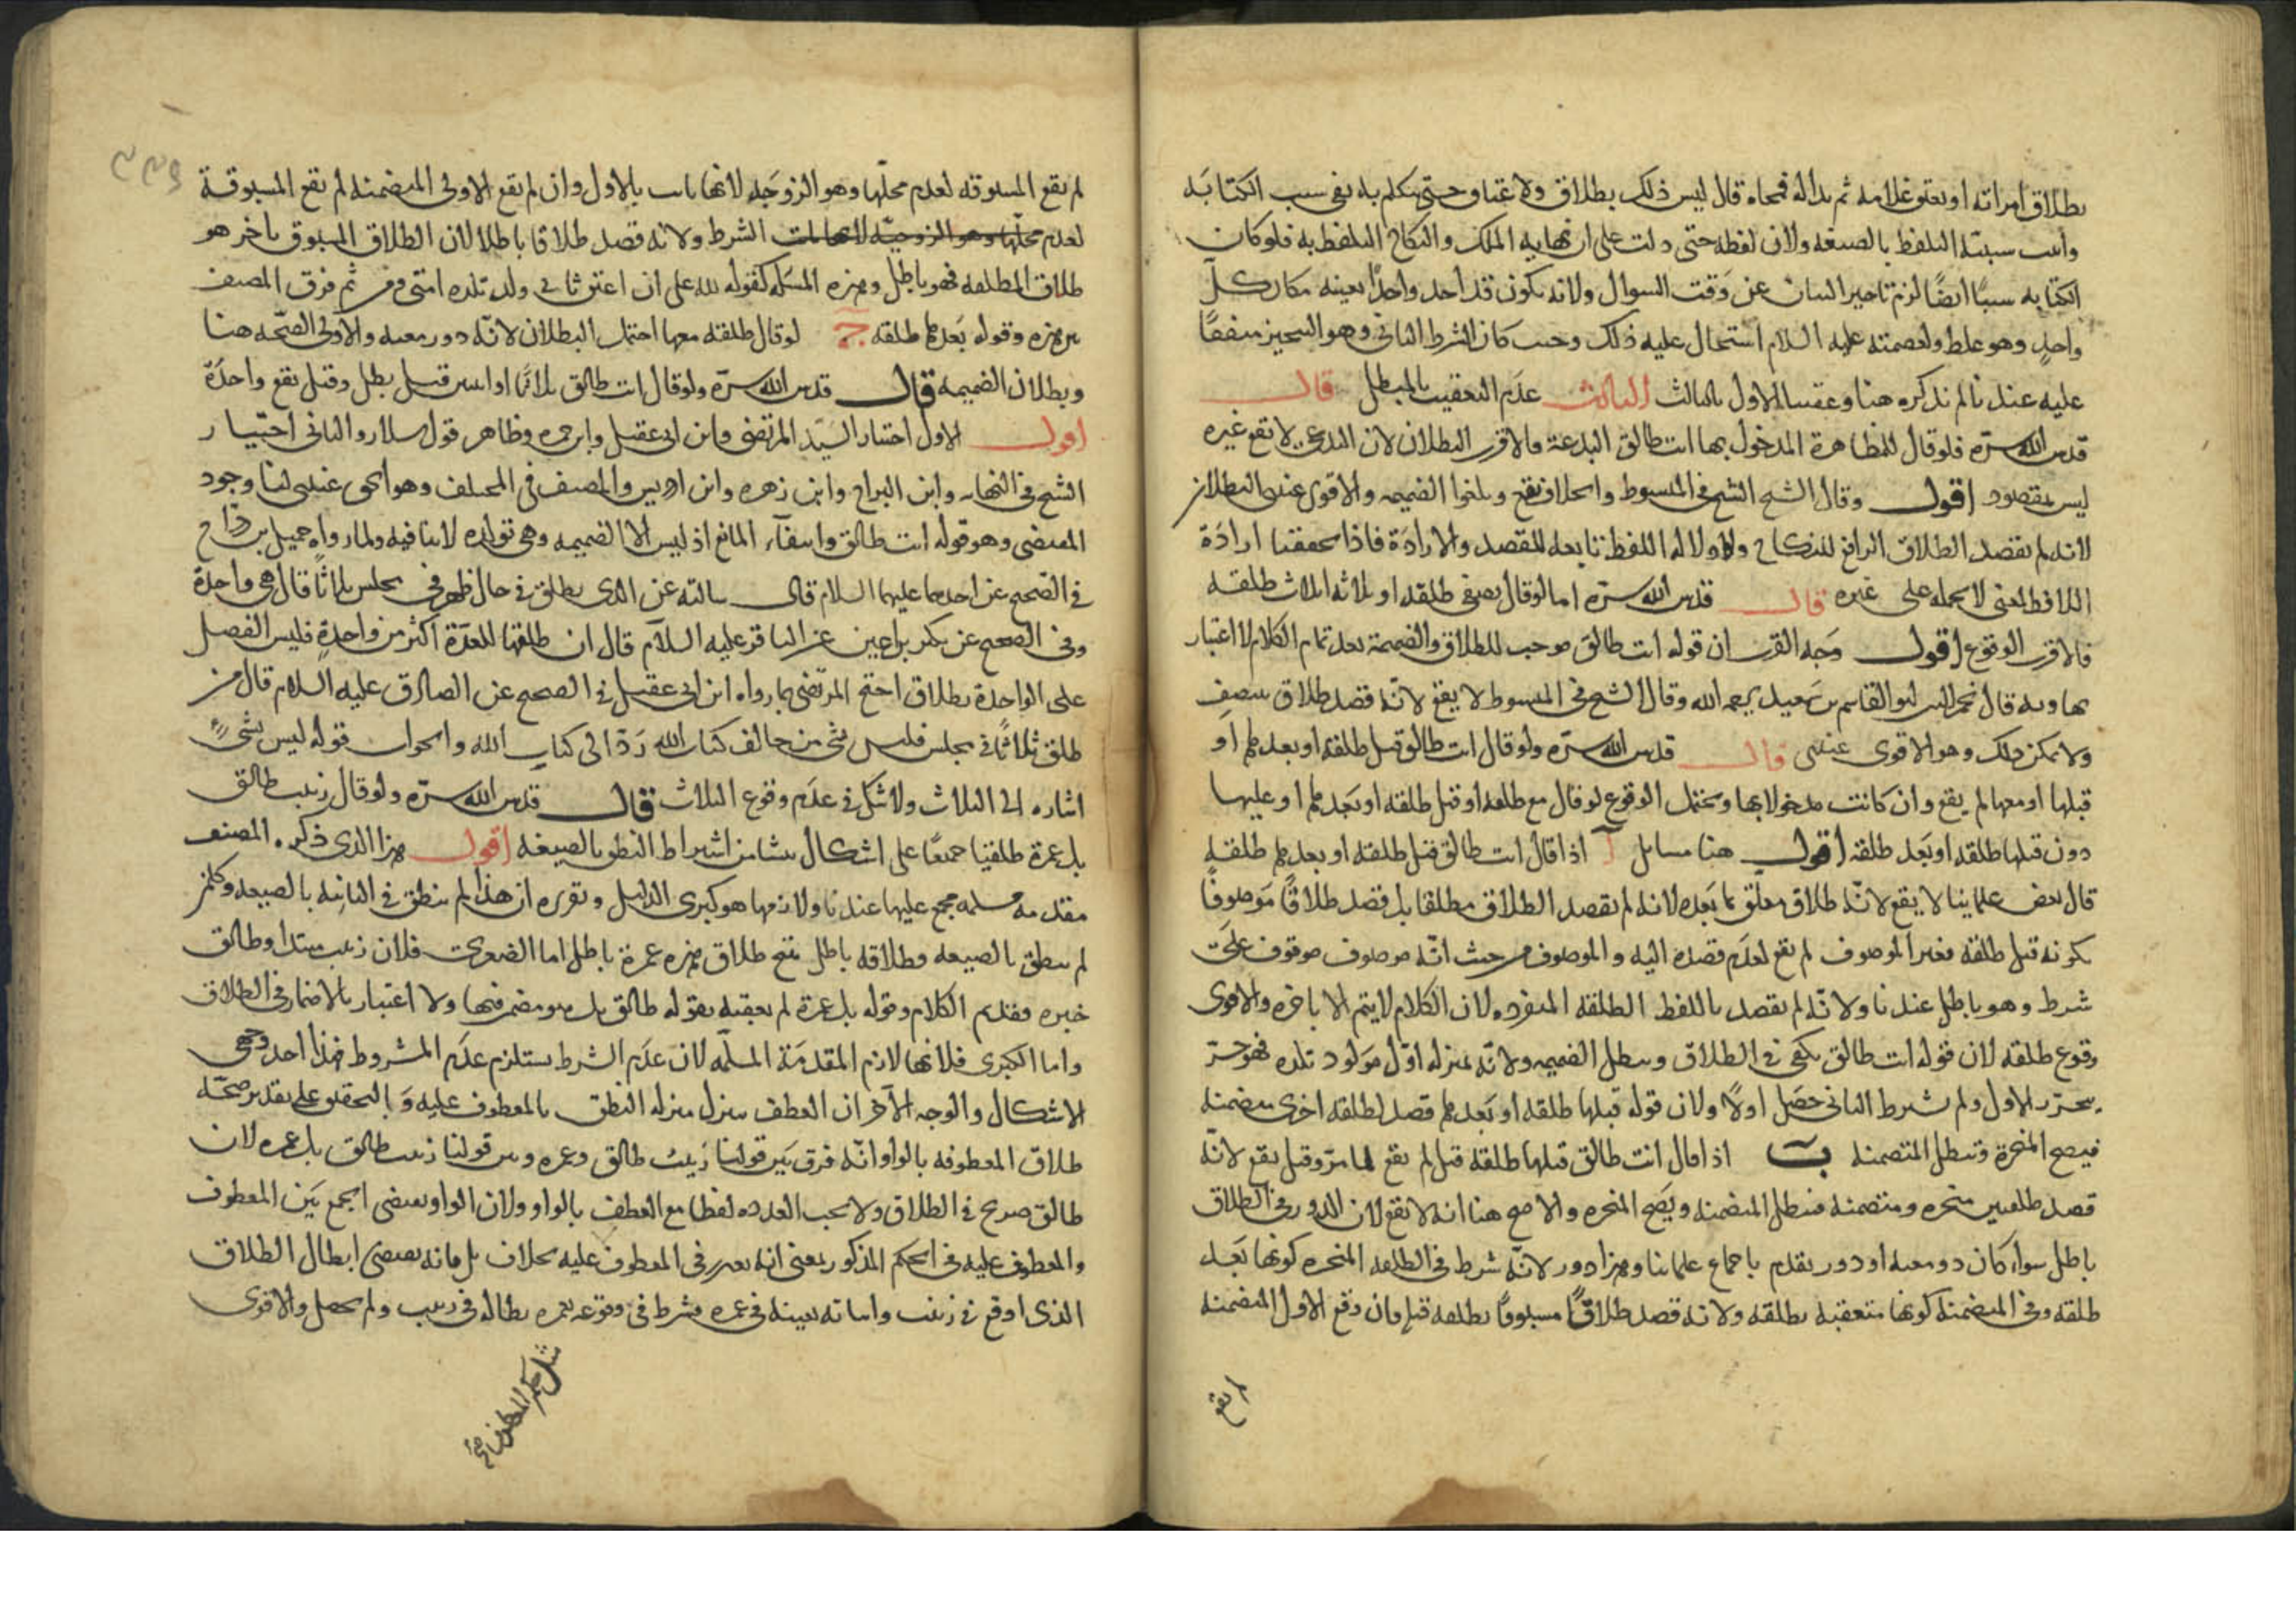 بطلاق امراته او بعتق غلامه ثم بدا له فمحاه قال ليس ذلك بطلاق ولا عتاق حتى يتكلم به نفى سبب الكتابه
واثبت سببيته التلفظ بالصيغه ولان لفظه حتى دلت على ان نهايه الملك والنكاح التلفظ به فلو كان
الكتابه سببًا ايضًا لزم تاخير البيان عن وقت السوال ولانه يكون قد اخذ واحدًا بعينه مكان كل
واحدٍ وهو غلط ولعصمته عليه السلام استحال عليه ذلك وحيث كان الشرط الثانى وهو التنجيز متفقًا
عليه عندنا لم نذكره هنا وعقب الاول بالثالث الثالث عدم التعقيب بالمبطل قال
قدس الله سرّه فلو قال للطاهرة المدخول بها انت طالق للبدعة فالاقرب البطلان لان البدعى لا يقع غيره
ليس بمقصود اقول وقال الشيخ الشيخ فى المبسوط والخلاف يقع ويلغوا الضميمه والاقوى عندى البطلان
لانه لم يقصد الطلاق الرافع للنكاح ودلاله اللفظ تابعه للقصد والارادة فاذا تحققنا ارادة
اللافظ لمعنى لا يحمله على غيره قال قدس الله سرّه اما لو قال نصفى طلقه او ثلاثه اثلاث طلقه
فالاقرب الوقوع اقول وجه القرب ان قوله انت طالق موجب للطلاق والضميمة بعد تمام الكلام لا اعتبار
بها وبه قال نجم الدين ابو القاسم بن سعيد رحمه الله وقال الشيخ فى المبسوط لا يقع لانّه قصد طلاق بنصفٍ
ولا يمكن ذلك وهو الاقوى عندى قال قدس الله سرّه ولو قال انت طالق قبل طلقه او بعدها او
قبلها او معها لم يقع وان كانت مدخولا بها ويحتمل الوقوع لو قال مع طلقه او قبل طلقه او بعدها او عليها
دون قبلها طلقه او بعد طلقه اقول هنا مسائل آ اذا قال انت طالق قبل طلقه او بعدها طلقه
قال بعض علماينا لا يقع لانّه طلاق معلق بما بعده لانه لم يقصد الطلاق مطلقا بل قصد طلاقًا موصوفًا
بكونه قبل طلقه فغير الموصوف لم يقع لعدم قصده اليه والموصوف من حيث انّه موصوف موقوف على
شرط وهو باطل عندنا ولانّه لم يقصد باللفظ الطلقه المنفرده لان الكلام لا يتم الا باخره والاقوى
وقوع طلقه لان قوله انت طالق يكفى فى الطلاق وتبطل الضميمه ولانّه بمنزله اوّل مولود تلده فهو حرّ
يتحرر الاول ولم يشرط الثانى حصل اولًا ولان قوله قبلها طلقه او بعدها قصد لطلقه اخرى متضمنه
فيصح المنجزة وتبطل المتضمنه بٓ اذا قال انت طالق قبلها طلقه قيل لم يقع لما مرّ وقيل يقع لانّه
قصد طلقتين منجزه ومتضمنه فتبطل المتضمنه ويصح المنجزه والاصح هنا انه لا يقع لان الدور فى الطلاق
باطل سواء كان دور معيه او دور تقدم باجماع علماينا وهذا دور لانّه شرط فى الطلقه المنجزه كونها بعد
طلقه وفى المتضمنه كونها متعقبه بطلقه ولانه قصد طلاقًا مسبوقًا بطلقه قبل فان وقع الاول المتضمنه
لم يقع
لم يقع المسبوقه لعدم محلّها وهو الزوجَه لانها بانت بالاول وان لم يقع الاولى المتضمنه لم يقع المسبوقة
لعدم محلّها وهو الزوجيّه لانها بانت الشرط ولانه قصد طلاقا باطلا لان الطلاق المسبوق باخر هو
طلاق المطلقه فهو باطل وهذه المسَله كقوله لله على ان اعتق ثانى ولد تلده امتى ثم فرق المصنف
بين هذه وقوله بعدها طلقه جٓ لو قال طلقه معها احتمل البطلان لانّه دور معيه والاولى الصحّه هنا
وبطلان الضميمه قال قدس الله سرّه ولو قال انت طالق ثلاثًا او اثنين قيل بطل وقيل يقع واحدة
اقول الاول اختيار السيّد المرتضى وابن ابى عقيل وابن حمزه وظاهر قول سلار والثانى اختيار
الشيخ فى النهايه وابن البراج وابن زهره وابن ادريس والمصنف فى المختلف وهو الحق عندى لنا وجود
المقتضى وهو قوله انت طالق وانتفآء المانع اذ ليس الا الضميمه وهى توكده لا تنافيه ولما رواه جميل بن درّاج
فى الصّحيح عن احدهما عليهما السلام قال سالته عن الذى يطلق فى حال طهر فى مجلس ثلاثًا قال هى واحدة
وفى الصحيح عن بكير بن اعين عن الباقر عليه السلام قال ان طلقها للعدّة اكثر من واحدةٍ فليس الفضل
على الواحدة بطلاق احتج المرتضى بما رواه ابن ابى عقيل فى الصحيح عن الصادق عليه السلام قال من
طلق ثلاثًا فى مجلس فليس بشى من خالف كتاب الله رَدّ الى كتاب الله والجواب قوله ليس بشىءٍ
اشاره الى الثلاث ولا شكّ فى عدم وقوع الثلاث قال قدس الله سرّه ولو قال زينب طالق
بل عمرة طلقتا جميعًا على اشكال ينشا من اشتراط النطق بالصيغه اقول هذا الذى ذكره المصنف
مقدمه مسلمه مجمع عليها عندنا ولازمها هو كبرى الدليل وتقريره ان هذا لم ينطق فى الثانيه بالصيغه وكلّ من
لم ينطق بالصيغه فطلاقه باطل ينتج طلاق هذه عمرة باطل اما الصغرى فلان زينب مبتدا وطالق
خبره فقد تم الكلام وقوله بل عمرة لم يعقبه بقوله طالق بل هو مضمر فيها ولا اعتبار بالاضمار فى الطلاق
واما الكبرى فلانها لازم المقدمة المسلّمه لان عدم الشرط يستلزم عدم المشروط فهذا احد وجهى
الاشكال والوجه الآخر ان العطف ينزل منزله النطق بالمعطوف عليه وَ التحقيق على تقدير صحّه
طلاق المعطوفه بالواو انّه فرق بَين قولنا زينب طالق وعمره وبين قولنا زينب طالق بل عمره لان
طالق صريح فى الطلاق ولا يجب تعدده لفظا مع العطف بالواو ولان الواو يقتضى الجمع بَين المعطوف
والمعطوف عليه فى الحكم المذكور بمعنى انه تقرر فى المعطوف عليه بخلاف بل فانه يقتضى ابطال الطلاق
الذى اوقع فى زينب واثباته بعينه فى عمره فشرط فى وقوعه بعمره بطاله فى زينب ولم يحصل والاقوى